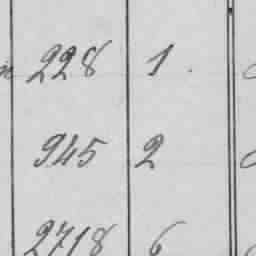 228 1.
945 2
2718 6